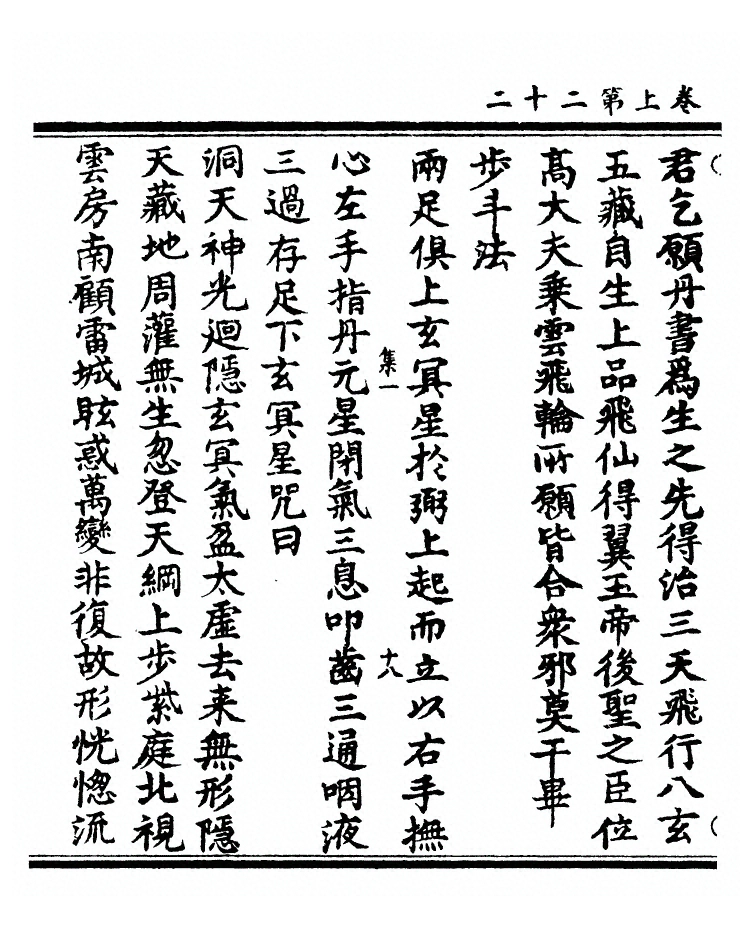 卷上第二十二
君乞願丹書爲生之先得治三天飛行八玄
五藏自生上品飛仙得翼玉帝後聖之臣位
高大夫乗雲飛輪所願皆合衆邪莫干畢
步斗法
兩足俱上玄冥星於弼上起而立以右手撫
集一
十八
心左手指丹元星閉氣三息叩齒三通咽液
三過存足下玄冥星咒曰
洞天神光迴隱玄冥氣盈太虛去来無形隱
天藏地周灌無生忽登天綱上步紫庭北視
雲房南顧雷城眩惑萬變非復故形恍惚流